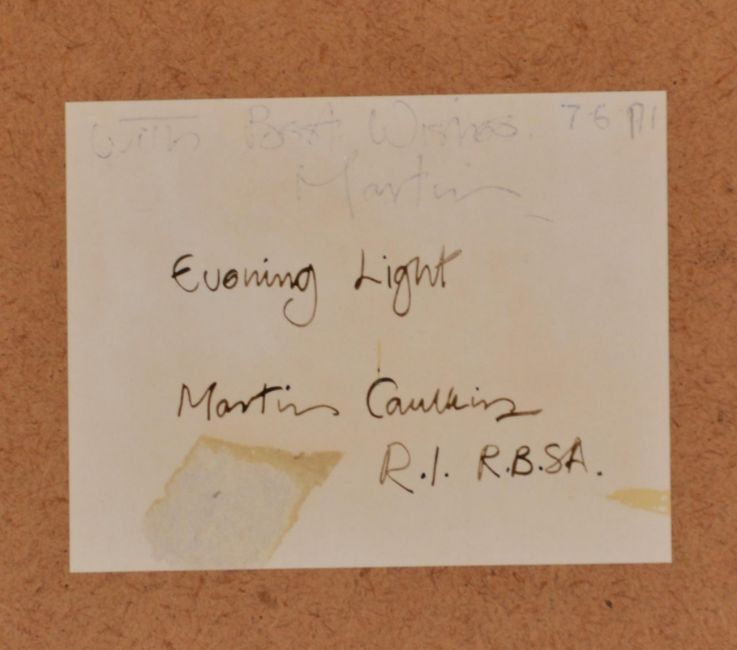 With Best Wishes.
Martin
Evening Light
Martin Caulkin
R.I. R.B.S.A.